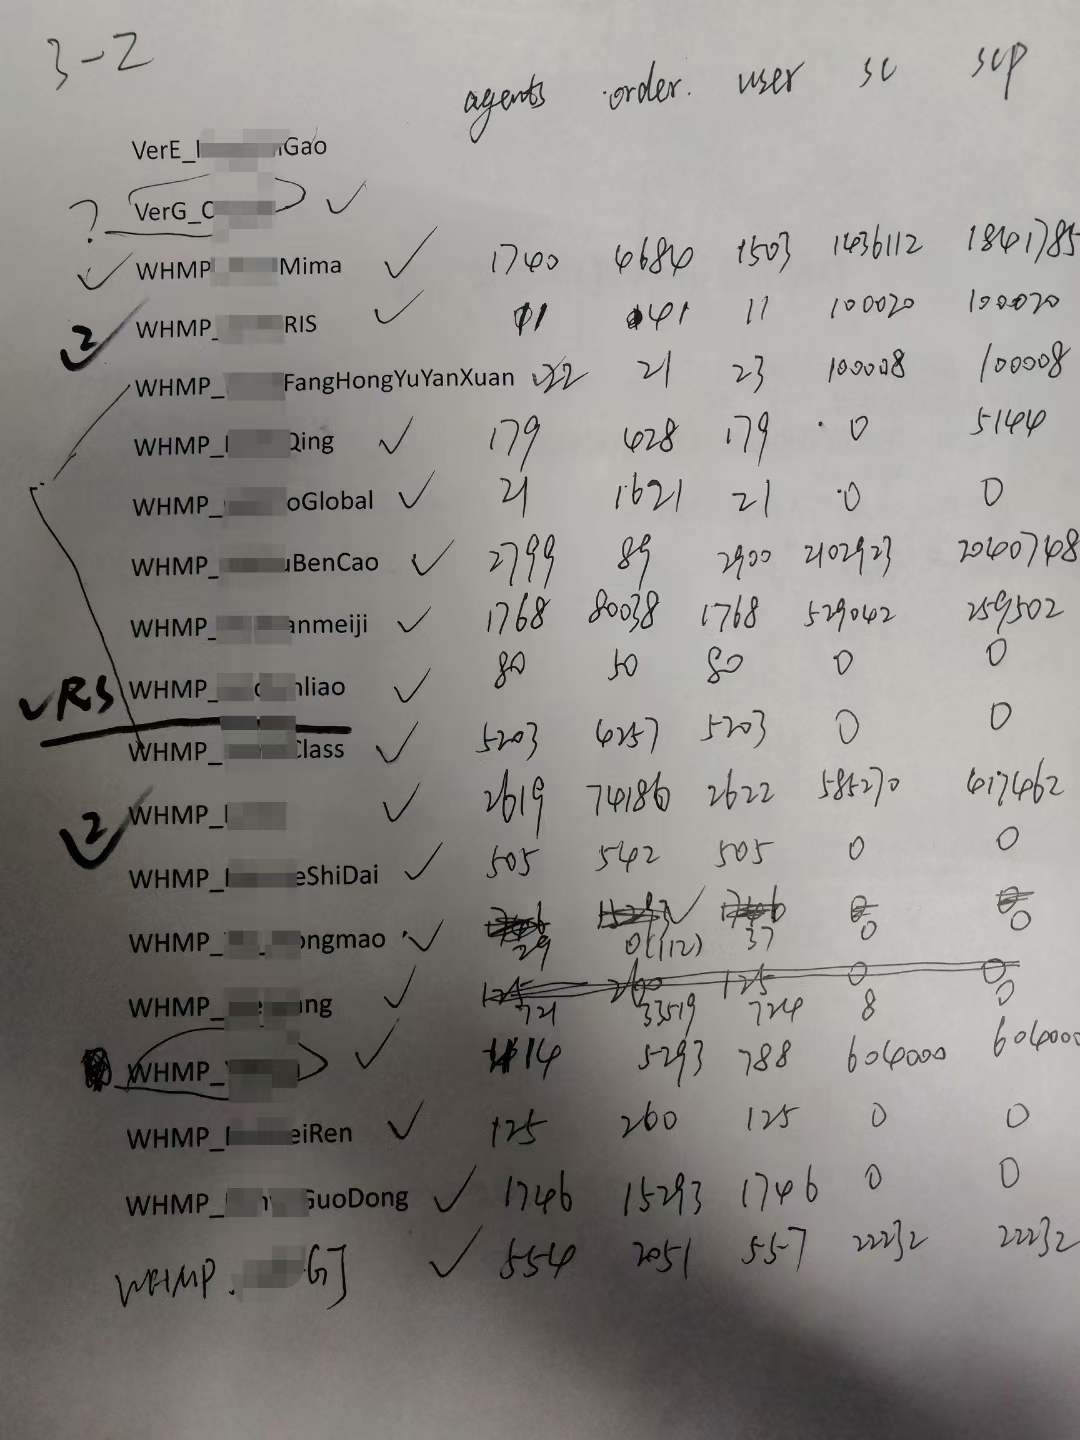 3-2
agents order. user sc scp
VerE_ Gao
VerG_C ✓
? 
✓ WHMP Mima ✓ 1740 4684 1503 1436112 1841785
2 WHMP_ RIS ✓ 11 41 11 100020 100020
WHMP_ FangHongYuYanXuan 22 21 23 100008 100008
WHMP_ Qing ✓ 179 428 179 0 5144
WHMP_ oGlobal ✓ 21 1621 21 0 0
WHMP_ uBenCao ✓ 2799 89 2900 2102923 2040748
WHMP_ anmeiji ✓ 1768 80038 1768 529042 259502
✓RS WHMP_ nliao ✓ 80 50 80 0 0
WHMP_ Class ✓ 5203 4257 5203 0 0
2 WHMP_ ✓ 2619 74186 2622 585270 417462
WHMP_ eShiDai ✓ 505 542 505 0 0
WHMP_ ongmao ✓ 29 0(112) 37 0 0
WHMP_ ang ✓ 721 33519 724 8 0
WHMP_ ✓ 14 5293 788 604000 604000
WHMP_ eiRen ✓ 125 260 125 0 0
WHMP_ GuoDong ✓ 1746 15293 1746 0 0
WHMP. GJ ✓ 554 2051 557 22232 22232